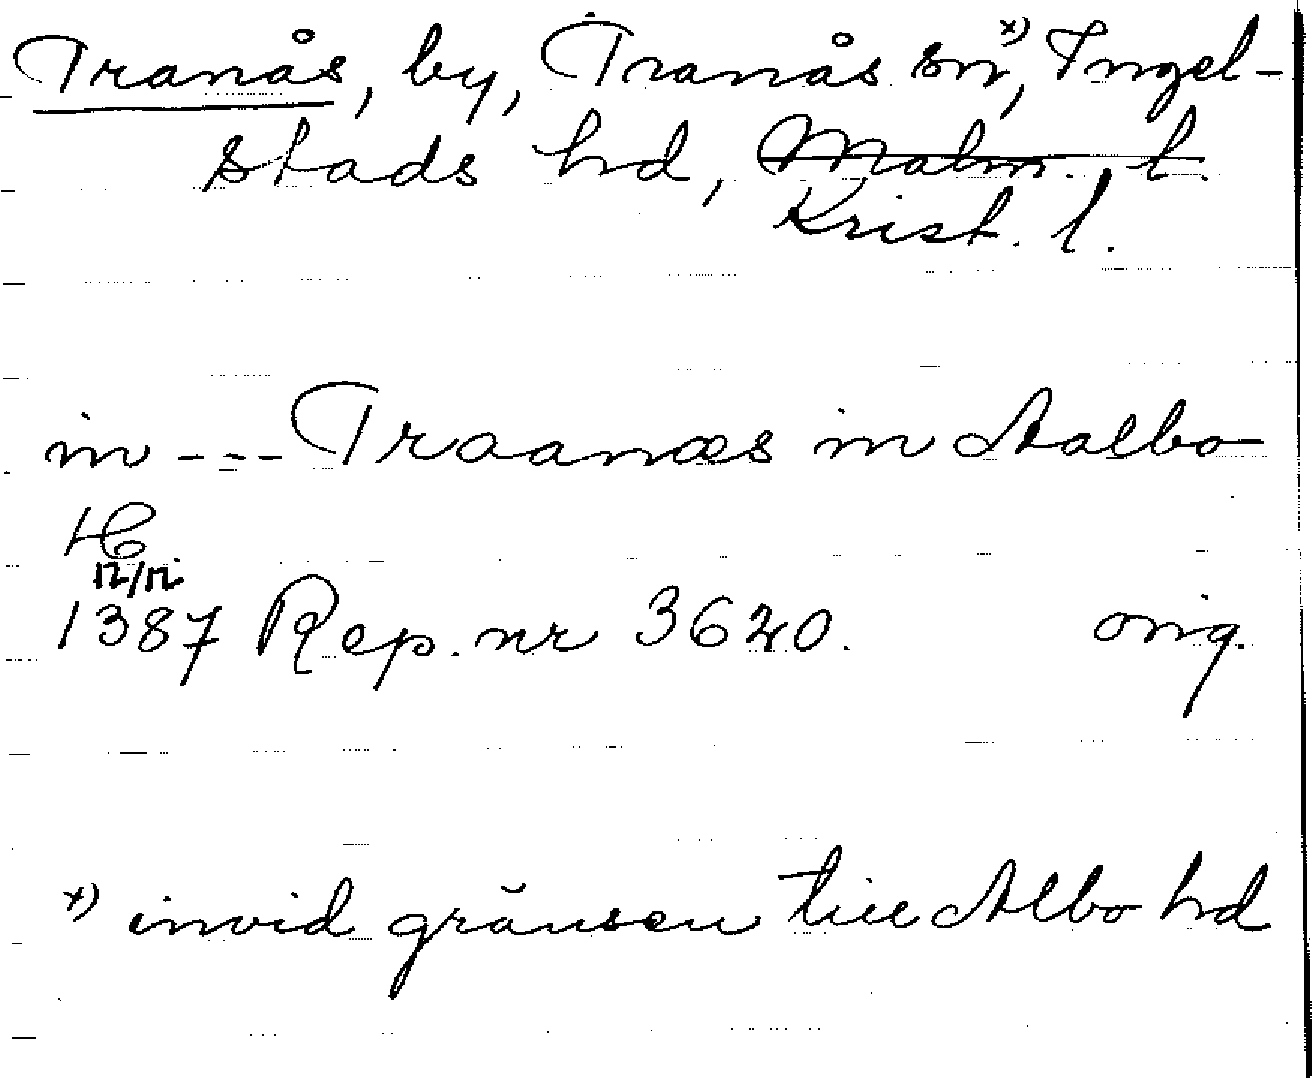 Tranås, by, Tranås sn, x) Ingel-
stads hd, Malm. l.
Krist. l.
in --- Traanæs in Aalbo
H
12/12
1387 Rep. nr 3620. orig.
x) invid gränsen till Albo hd